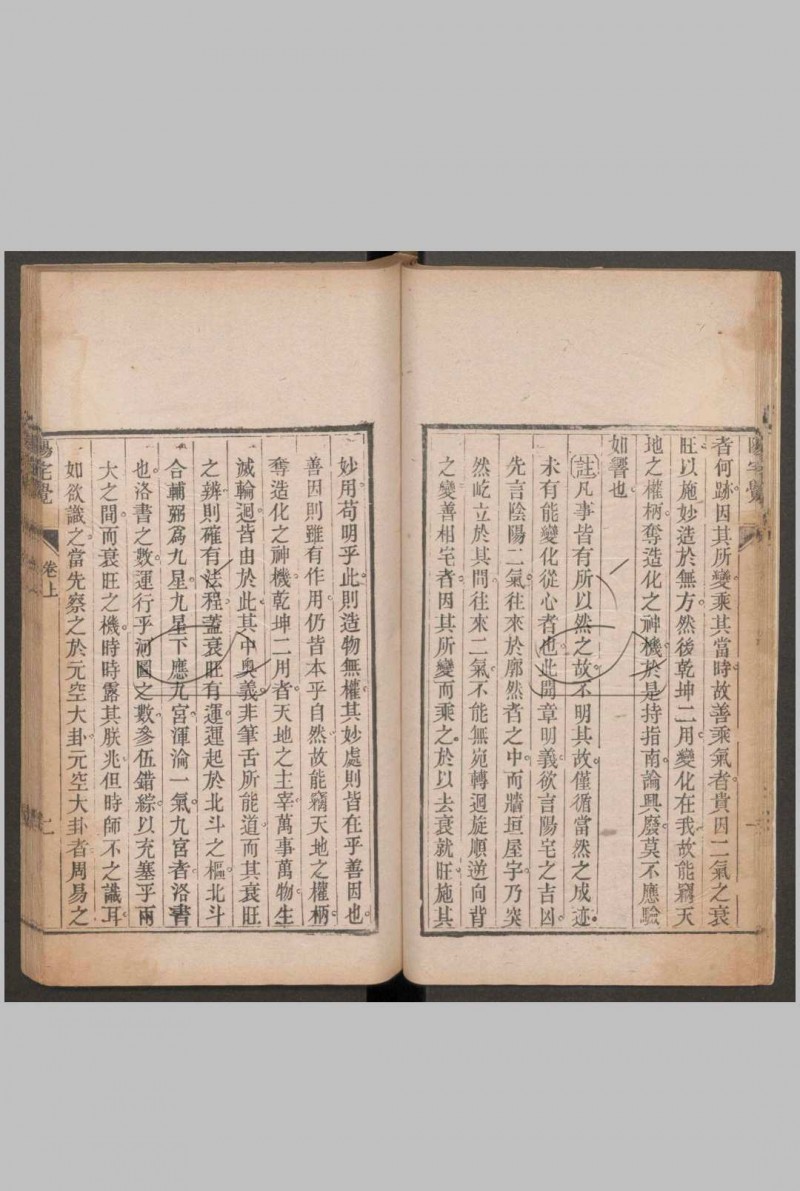 陽宅覺
者何跡因其所變乘其當時故善乘氣者貴因二氣之衰
旺以施妙造於無方然後乾坤二用變化在我故能竊天
地之權柄奪造化之神機於是持指南論興廢莫不應驗
如響也
註凡事皆有所以然之故不明其故僅循當然之成迹
未有能變化從心者也此開章明義欲言陽宅之吉凶
先言陰陽二氣往來於廓然者之中而牆垣屋宇乃突
然屹立於其間往來二氣不能無宛轉迴旋順逆向背
之變善相宅者因其所變而乘之於以去衰就旺施其
妙用苟明乎此則造物無權其妙處則皆在乎善因也
善因則雖有作用仍皆本乎自然故能竊天地之權柄
奪造化之神機乾坤二用者天地之主宰萬事萬物生
滅輪迴皆由於此其中奧義非筆舌所能道而其衰旺
之辨則確有法程蓋衰旺有運運起於北斗之樞北斗
合輔弼爲九星九星下應九宮渾淪一氣九宮者洛書
也洛書之數運行乎河圖之數參伍錯綜以充塞乎兩
大之間而衰旺之機時時露其朕兆但時師不之識耳
如欲識之當先察之於元空大卦元空大卦者周易之
陽宅覺
卷上